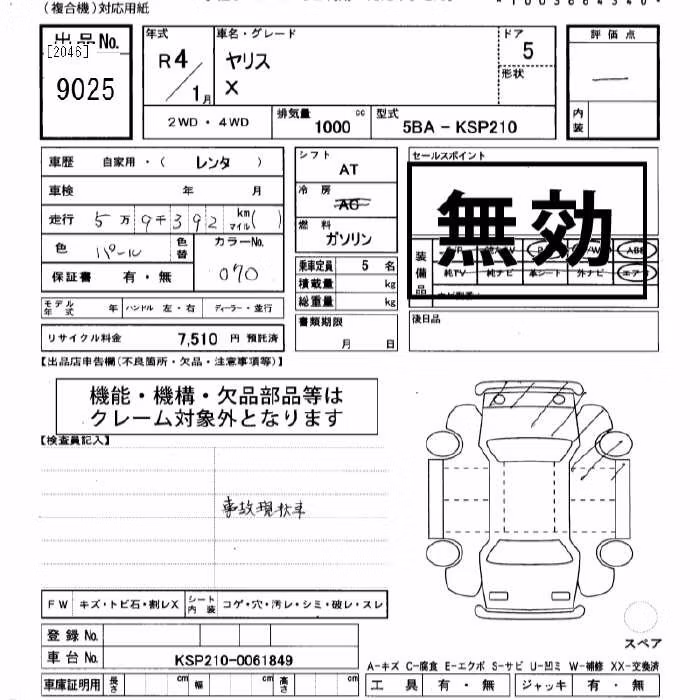 (複合機)対応用紙
出品No.
[2046]
9025
年式
R4/1月
車名・グレード
ヤリス
X
ドア
5
形状
評価点
内装
2WD・4WD
排気量
1000 cc
型式
5BA - KSP210
車歴 自家用・( レンタ )
車検 年 月
走行 5万9千392 km マイル( )
色 パール 色替 カラーNo. 070
保証書 有・無
モデル年式 年 ハンドル 左・右 ディーラー・並行
リサイクル料金 7,510 円 預託済
シフト
AT
冷房
AC
燃料
ガソリン
乗車定員 5 名
積載量 kg
総重量 kg
書類期限
月 日
セールスポイント
無効
装備品
純TV 純ナビ 革シート 外ナビ エアB
後日品
【出品店申告欄(不良箇所・欠品・注意事項等)】
機能・機構・欠品部品等は
クレーム対象外となります
【検査員記入】
事故現状車
FW キズ・トビ石・割レX シート内装 コゲ・穴・汚レ・シミ・破レ・スレ
登録No.
車台No. KSP210-0061849
車庫証明用 長さ cm 幅 cm 高さ cm
スペア
A-キズ C-腐食 E-エクボ S-サビ U-凹ミ W-補修 XX-交換済
工具 有・無 ジャッキ 有・無